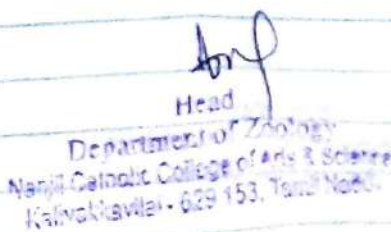 Head
Department of Zoology
Nanjil Catholic College of Arts & Science
Kaliyakkavilai - 629 153, Tamil Nadu